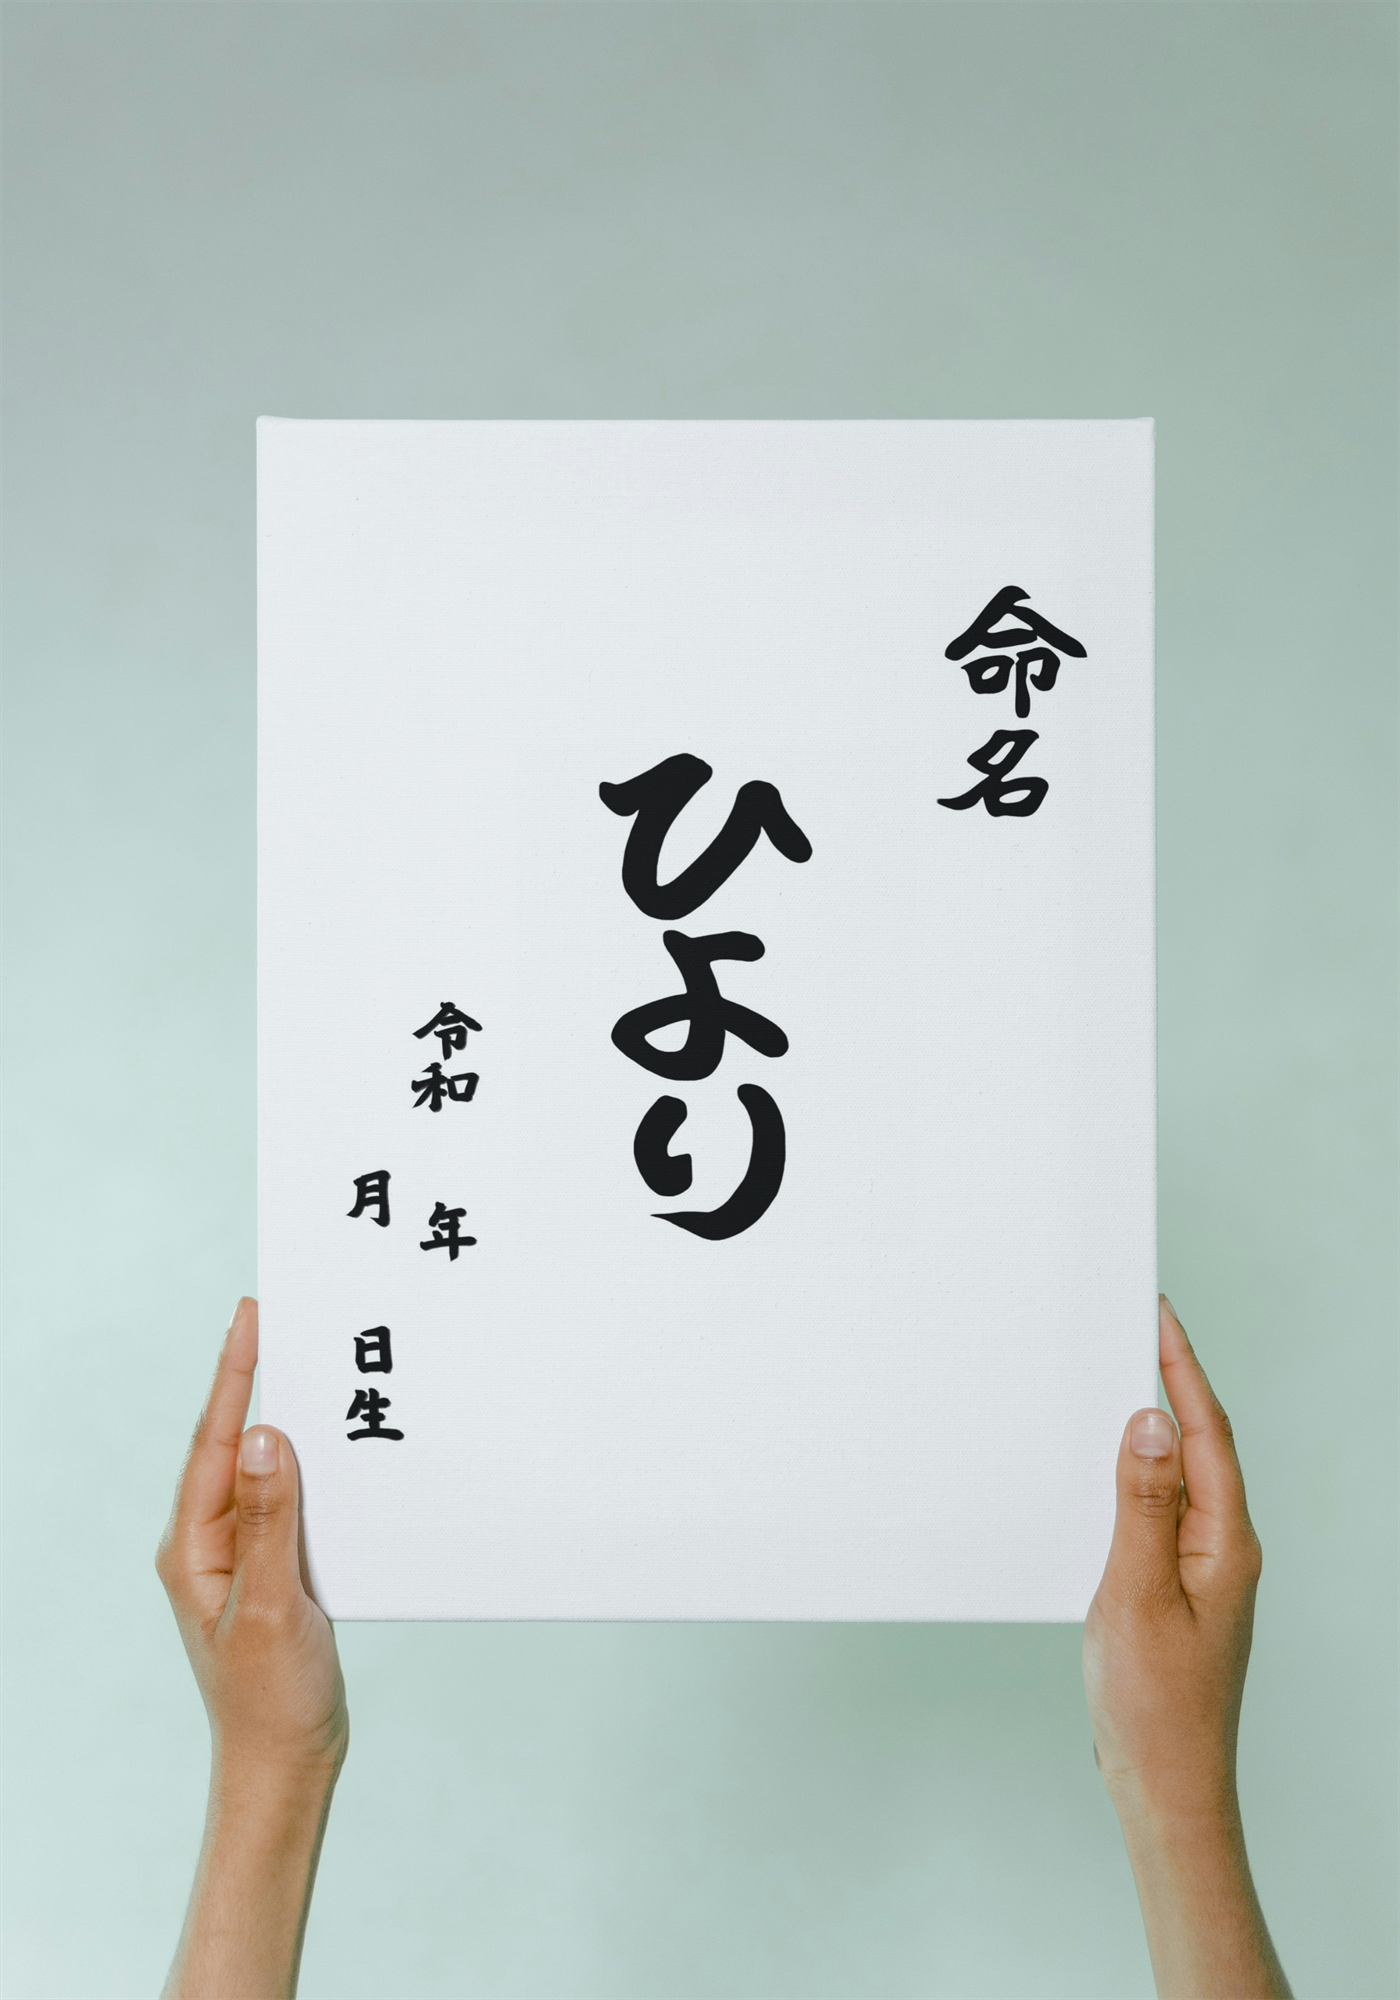 命名
ひより
令和 年
月 日生